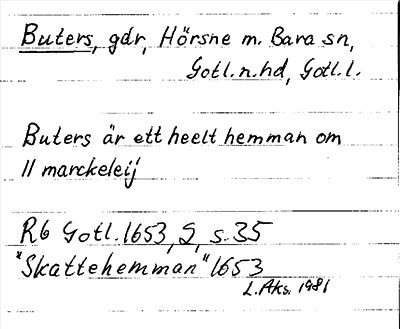 Buters, gdr, Hörsne m. Bara sn,
Gotl. n. hd, Gotl. l.
Buters är ett heelt hemman om
11 marckeleij
Rb Gotl. 1653, 2, s. 35
"Skattehemman" 1653
L. Aks. 1981